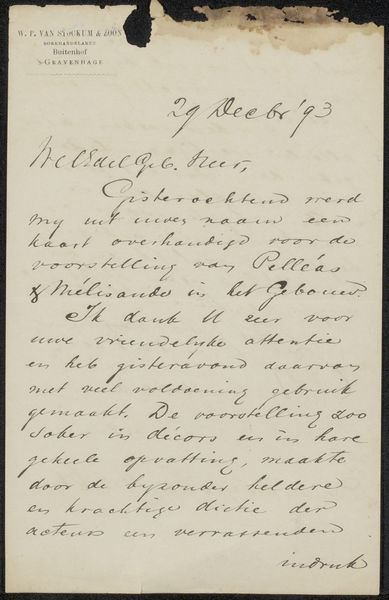 W. P. VAN STOCKUM & ZOON
BOEKHANDELAREN
Buitenhof
'S-GRAVENHAGE
29 Decbr '93
WelEdelGeb. Heer,
Gisterochtend werd
my uit uwen naam een
kaart overhandigd voor de
voorstelling van Pelléas
& Mélisande in het Gebouw.
Ik dank U zeer voor
uwe vriendelyke attentie
en heb gisteravond daarvan
met veel voldoening gebruik
gemaakt. De voorstelling zoo
sober in décors en in hare
geheele opvatting, maakte
door de byzonder heldere
en krachtige dictie der
acteurs een verrassenden
indruk